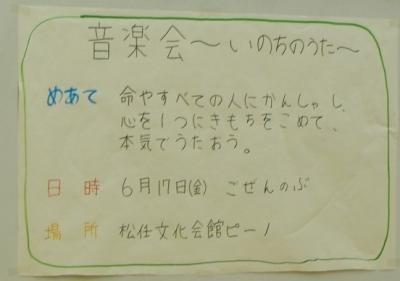 音楽会～いのちのうた～
めあて 命やすべての人にかんしゃし、
心を1つにきもちをこめて、
本気でうたおう。
日時 6月17日(金) ごぜんのぶ
場所 松任文化会館ピーノ